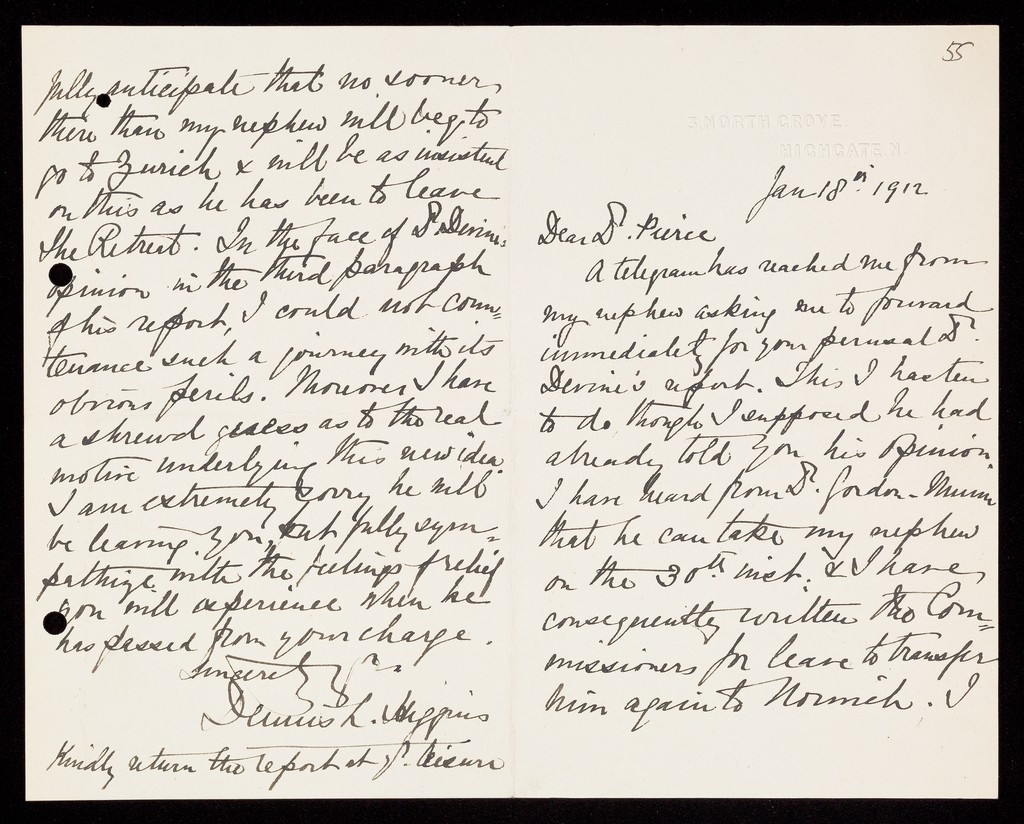 55
3. NORTH GROVE.
HIGHGATE. N.
Jan 18th. 1912
Dear Dr. Pierce
A telegram has reached me from
my nephew asking me to forward
immediately for your perusal Dr.
Devine's report. This I hasten
to do though I supposed he had
already told you his opinion.
I have heard from Dr. Gordon-Munn
that he can take my nephew
on the 30th inst. & I have
consequently written the Com=
missioners for leave to transfer
him again to Norwich. I
fully anticipate that no sooner
there than my nephew will beg to
go to Zurich & will be as insistent
on this as he has been to leave
the Retreat. In the face of Dr. Devine's
opinion in the third paragraph
of his report, I could not coun=
tenance such a journey with its
obvious perils. Moreover I have
a shrewd guess as to the real
motive underlying this new idea
I am extremely sorry he will
be leaving you, but fully sym=
pathize with the feelings of relief
you will experience when he
has passed from your charge.
Sincerely yrs
Dennis L. Higgins
Kindly return the report at yr. leisure